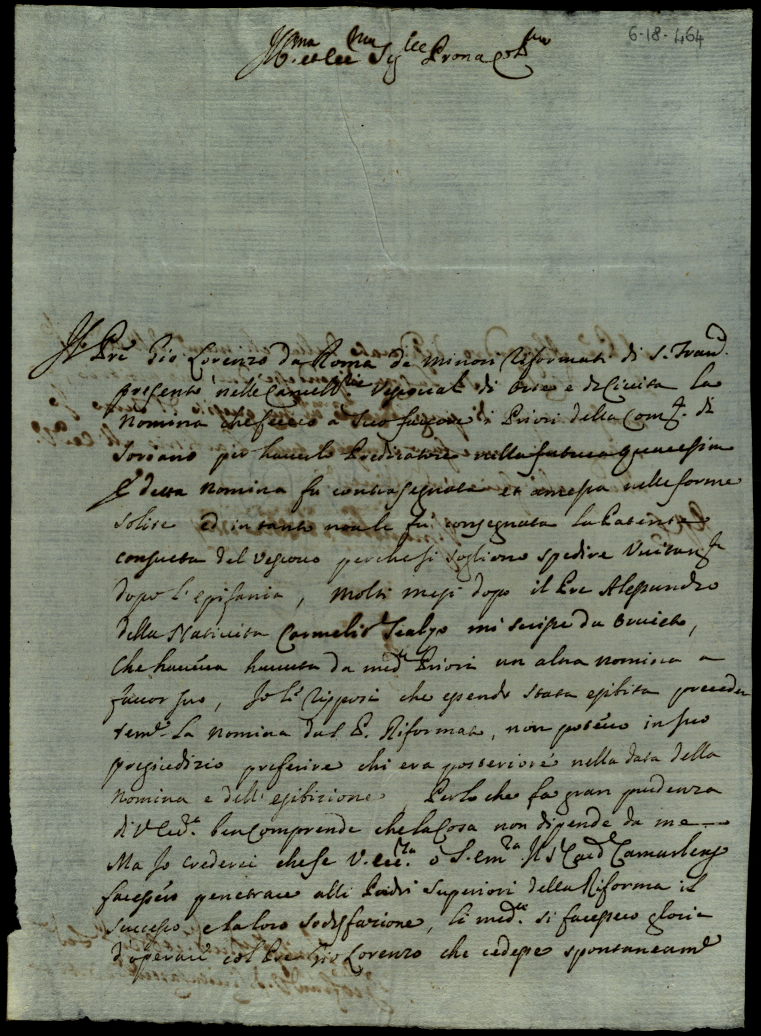 6-18-464
Ill.ma et Ecc.ma Sig.re Prona
Il Pre Gio Lorenzo da Roma de Minori Riformati di S. Franc.
presentò nelle Cancell.rie Vescoval di Orte e di Civita la
Nomina che fecero a suo favore di Priori della Com.tà di
Soriano per haverlo Predicatore nella futura Quaresima
E detta Nomina fu contrasegnata et amessa nelle forme
solite ed in tanto non le fu consegnata la Patente
consueta del Vescovo perche si sogliono spedire
dopo l'epifania, Molti mesi dopo il Pre Alessandro
della Natività Carmelit Scalzo mi scrisse da Orvieto,
Che haveva havuta da med.i Priori un altra nomina a
favor suo, Io li risposi che essendo stata esibita preceden
tem.te la nomina dal P. Riformato, non potevo in suo
pregiudizio preferire chi era posteriore nella data della
nomina e dell'esibizione Perloche la gran prudenza
di V. Ecc.a ben comprende che la cosa non dipende da me
Ma Io crederei che se V. Ecc.za o S. Em.za Il S. Card Camarlengo
facessero penetrare alli Padri Superiori della Riforma il
successo e la loro sodisfazione, li med.i si facessero gloria
d'operare col Pre Gio Lorenzo che cedesse spontaneam.te